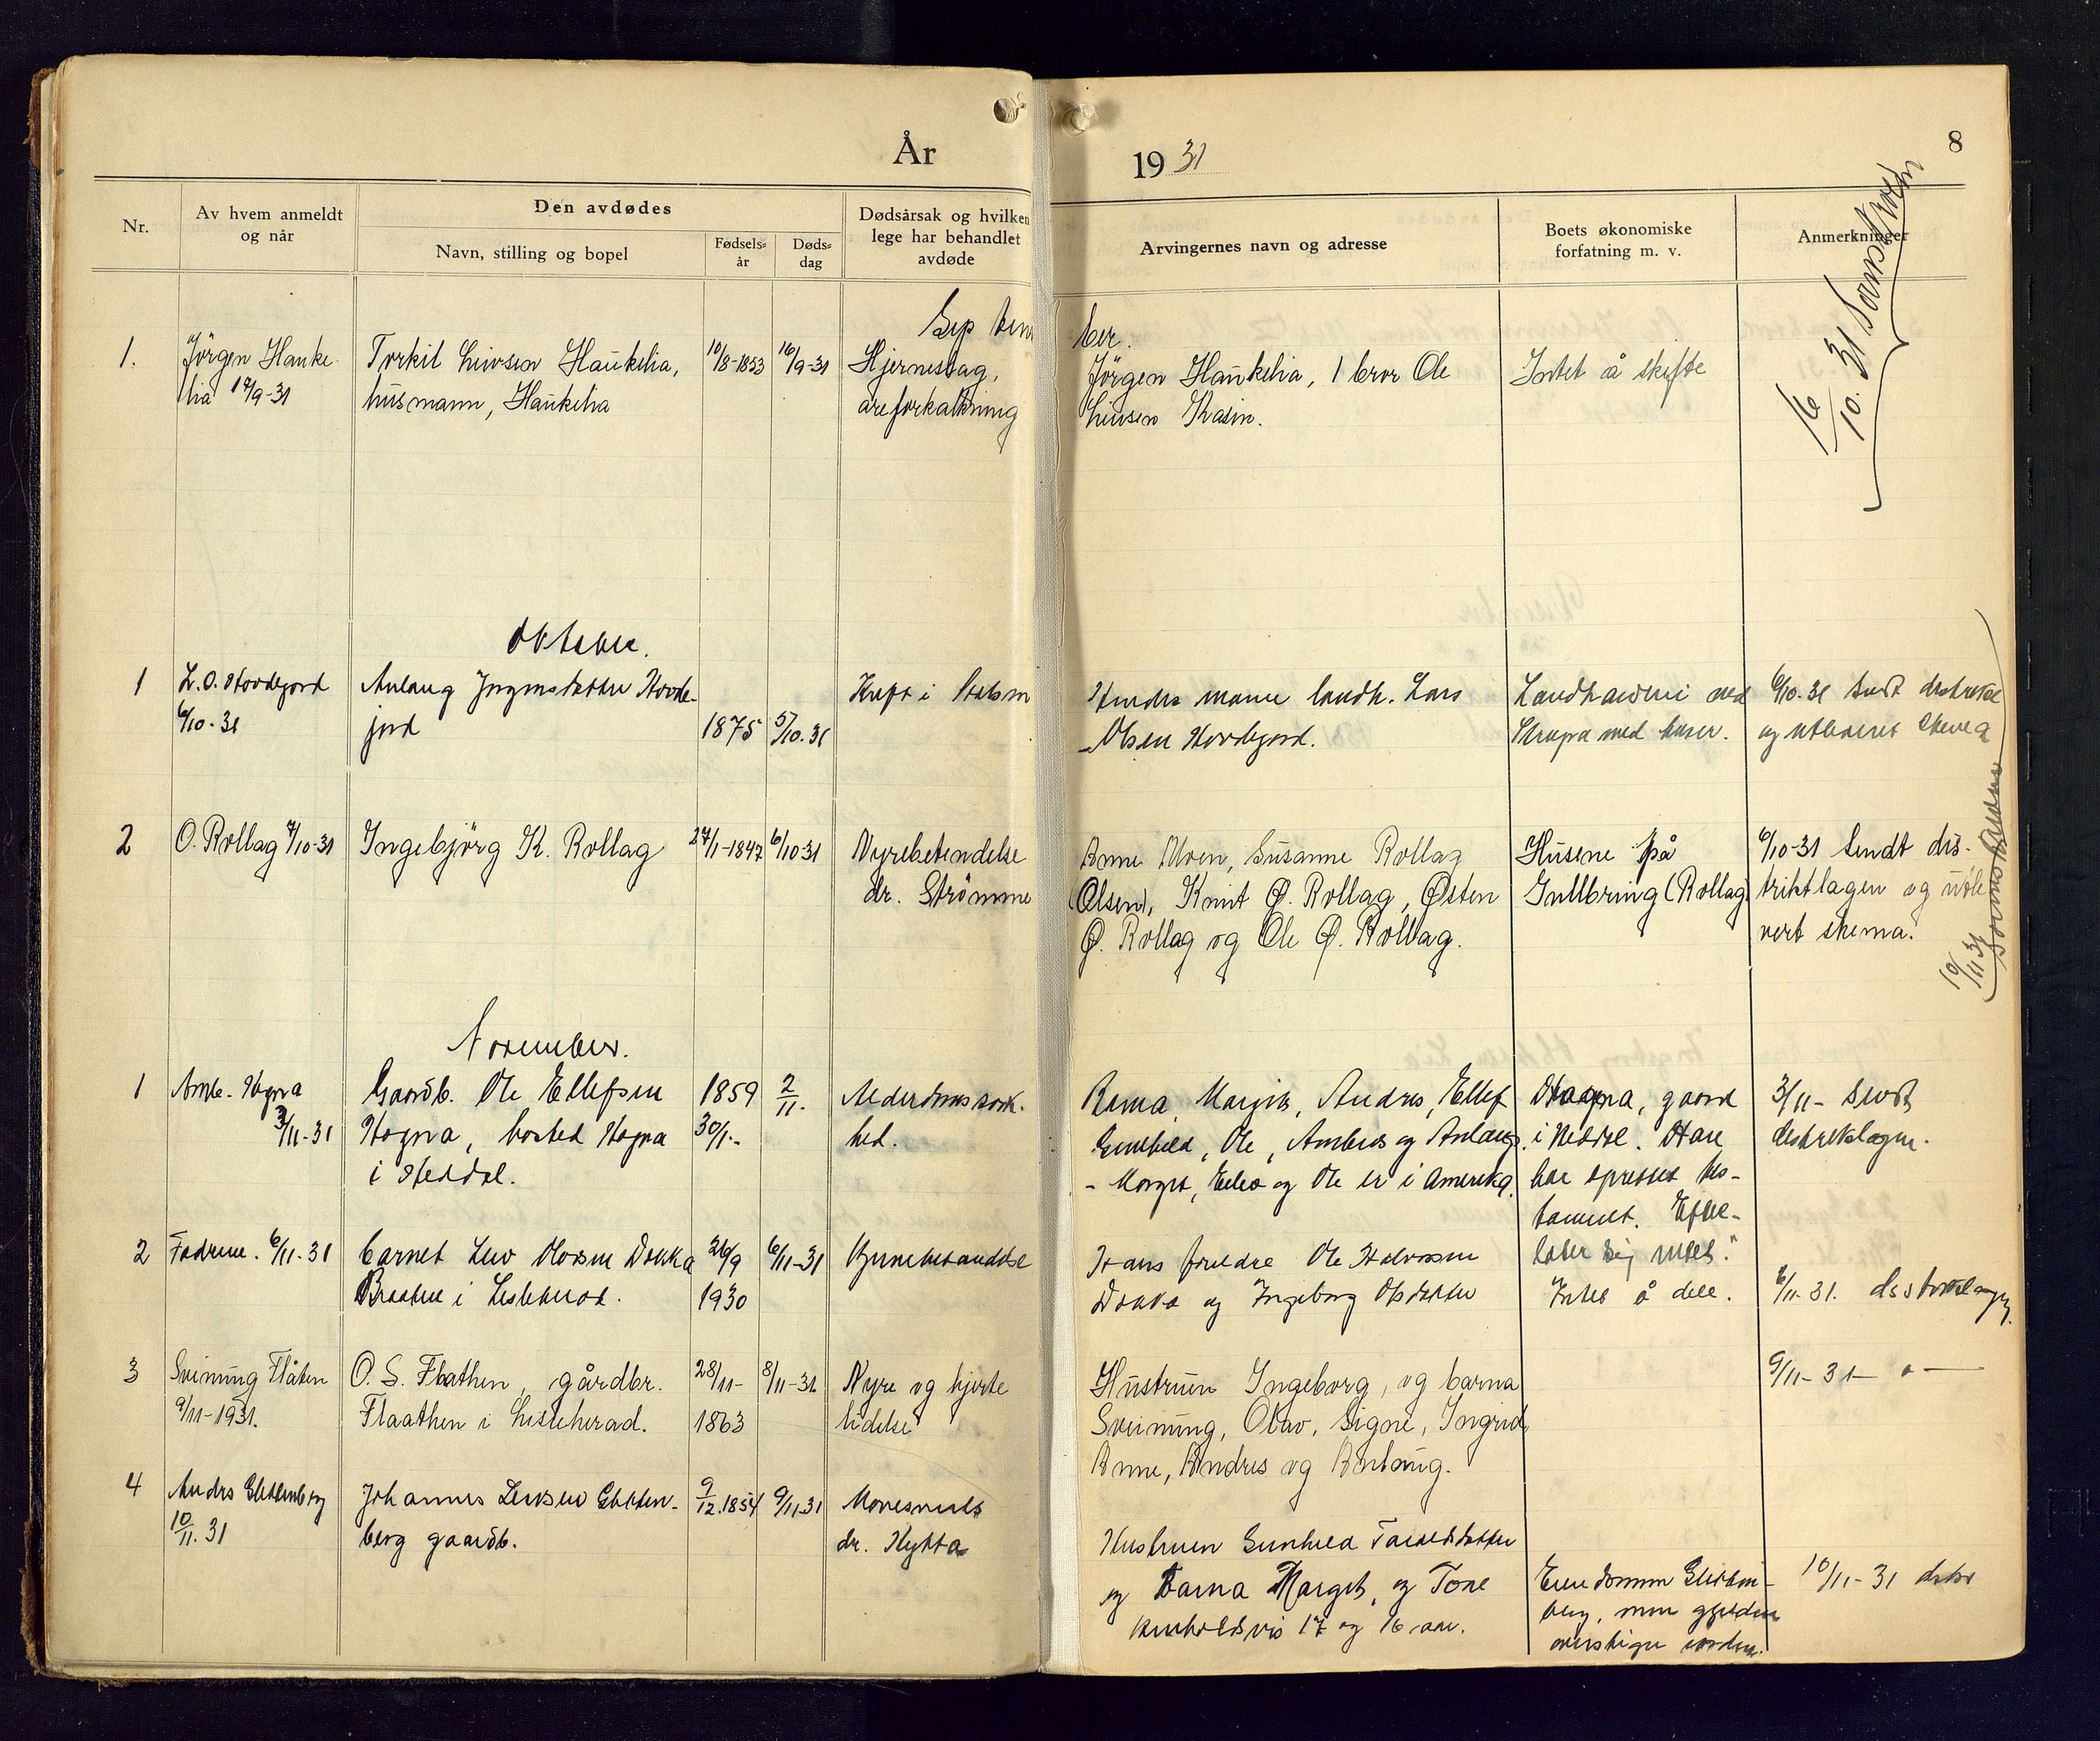 År
1931
8
Nr.
Av hvem anmeldt
og når
Den avdødes
Navn, stilling og bopel
Fødsels-
år
Døds-
dag
Dødsårsak og hvilken
lege har behandlet
avdøde
Arvingernes navn og adresse
Boets økonomiske
forfatning m. v.
Anmerkninger
September.
1.
Jörgen Hauke-
lia 17/9-31
Torkil Livsen Haukelia,
husmann, Haukelia
10/8-1853
16/9-31
Hjerneslag,
åreforkalkning
Jörgen Haukelia, 1 bror Ole
Livsen Kasin.
Intet å skifte
16/10. 31
Oktober.
1
L. O. Hovdejord
6/10-31
Anlaug Jörgensdatter Hovde-
jord
1875
5/10.31
Kreft i
Hendes mann landh. Lars
Olsen Hovdejord.
Landhandleri med
med huser.
6/10-31 Sendt
og utlevert skema
2
O. Rollag 7/10-31
Ingebjörg K. Rollag
27/1-1847
6/10-31
Nyrebetendelse
dr. Strömme
Anne Moen, Susanne Rollag
(Olsen), Knut Ø. Rollag, Østen
Ø. Rollag og Ole Ø. Rollag.
Husene på
Gullbring (Rollag)
6/10-31 Sendt dis-
triktlagen og utle
vert skema.
10/11 31
November.
1
Amb. Hogna
3/11-31
Gaardb. Ole Ellefsen
Hogna, bosted Hogna
i Heddal.
1859
30/1-
2/11.
Alderdomssvak-
hed.
Margit, Andres, Ellef
Gunhild, Ole, Ambros og Anlaug.
- Margit, Ellef og Ole er i Amerika.
Hogna, gaard
i Heddal. Han
har oprettet tes-
tament. Efter-
later sig intet."
3/11- Sendt
2
Fadren. 6/11-31
barnet Liv Olavsen Dokka
Braaten i Lisleherad.
26/9
1930
6/11-31
Hans foreldre Ole Halvorsen
Dokka og Ingeborg Olsdatter
Intet å dele.
6/11-31.
3
Sveinung Flåten
9/11-1931.
O. S. Flaathen, gårdbr.
Flaathen i Lisleherad.
28/11-
1863
8/11-31
Nyre og hjerte
lidelse
Hustruen Ingeborg, og barna
Sveinung, Olav, Signe, Ingrid,
Anne, Andres og Anlaug.
9/11-31 - " -
4
Andres Glittenberg
10/11.31
Johannes Leivsen Glitten-
berg gaardb.
9/12.1854
9/11-31
dr. Hytta
Hustruen Gunhild Taraldsdatter
og Barna Margit, og Tone
henholdsvis 17 og 16 aar.
Eiendommen Glitten-
berg, men gjelden
overstiger verdien.
10/11-31